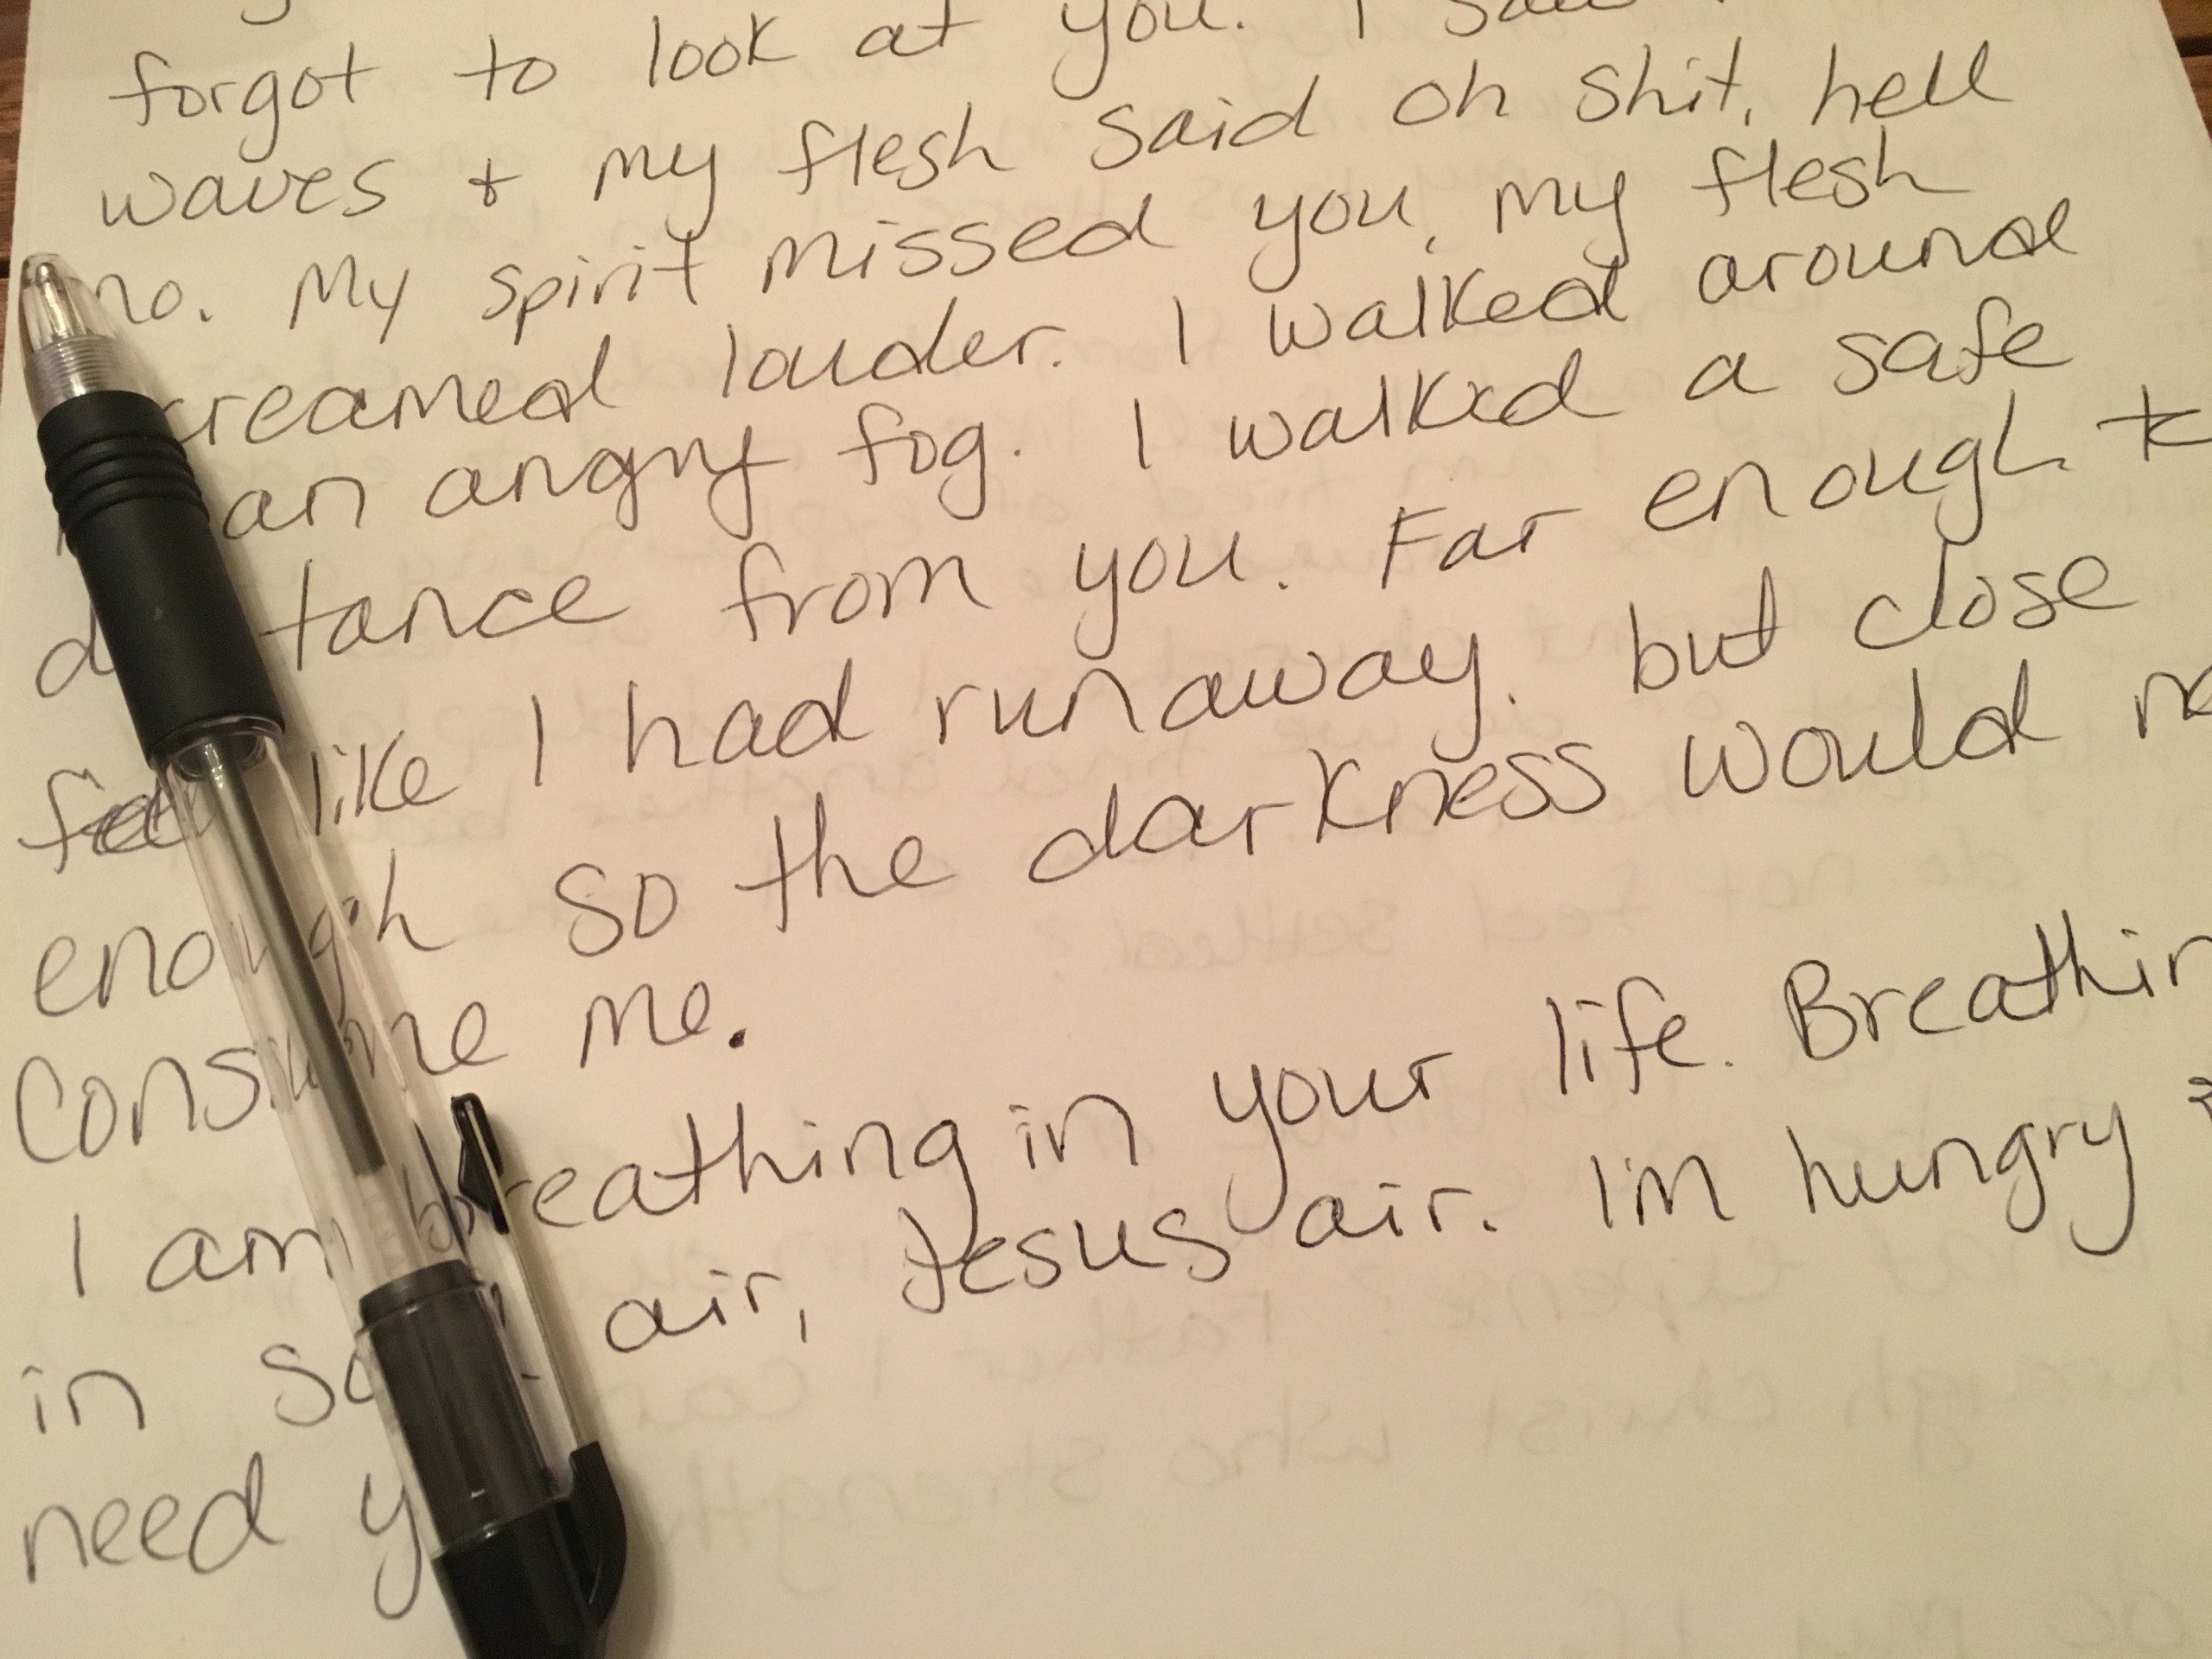 forgot to look at you. I saw
waves + my flesh said oh shit, hell
no. My spirit missed you, my flesh
creamed louder. I walked around
an angry fog. I walked a safe
d tance from you. Far enough t
feel like I had runaway. but close
enough so the darkness would n
Consume me.
I am breathing in your life. Breathin
in air, Jesus air. I'm hungry
need y